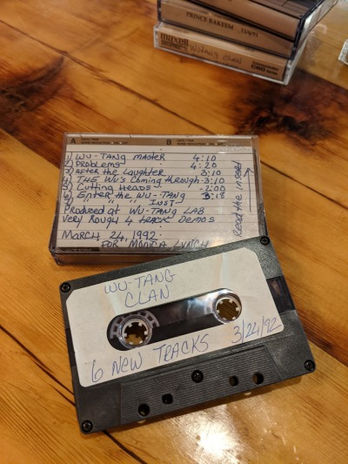 PRINCE RAKEEM
maxell
WUTANG CLAN
A
B
1) WU-TANG MASTER 4:10
2) PROBLEMS 4:20
3) AFTER the LAUGHTER 3:10
4) THE WU'S Coming through - 3:10
5) Cutting Heads - 2:00
6) Enter the WU-TANG 3:18
" " " INST -
Produced at WU-TANG LAB
VERY Rough 4 tRACK Demos
MARCH 24, 1992
FOR MONICA LYNCH
Read the insert
WU-TANG
CLAN
6 NEW TRACKS 3/24/92